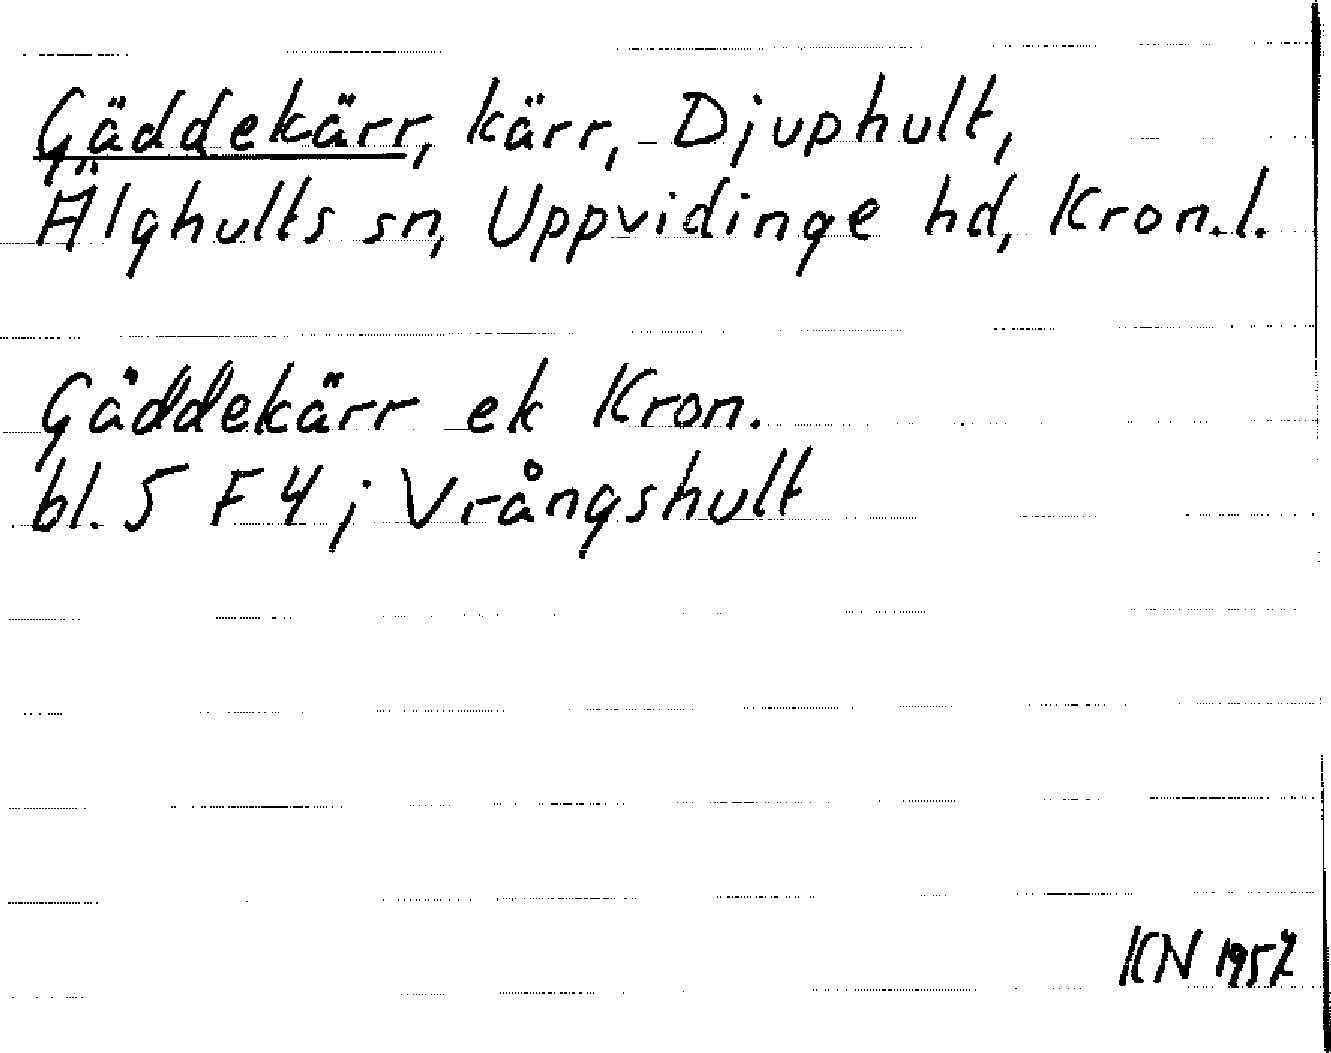 Gäddekärr, kärr, Djuphult,
Älghults sn, Uppvidinge hd, Kron.l.
Gäddekärr ek Kron.
bl. 5 F 4; Vrångshult
KN 1957